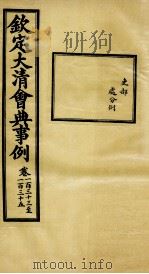 欽定大清會典事例
卷一百三十三至
一百三十五
吏部
處分例
mtoou.info